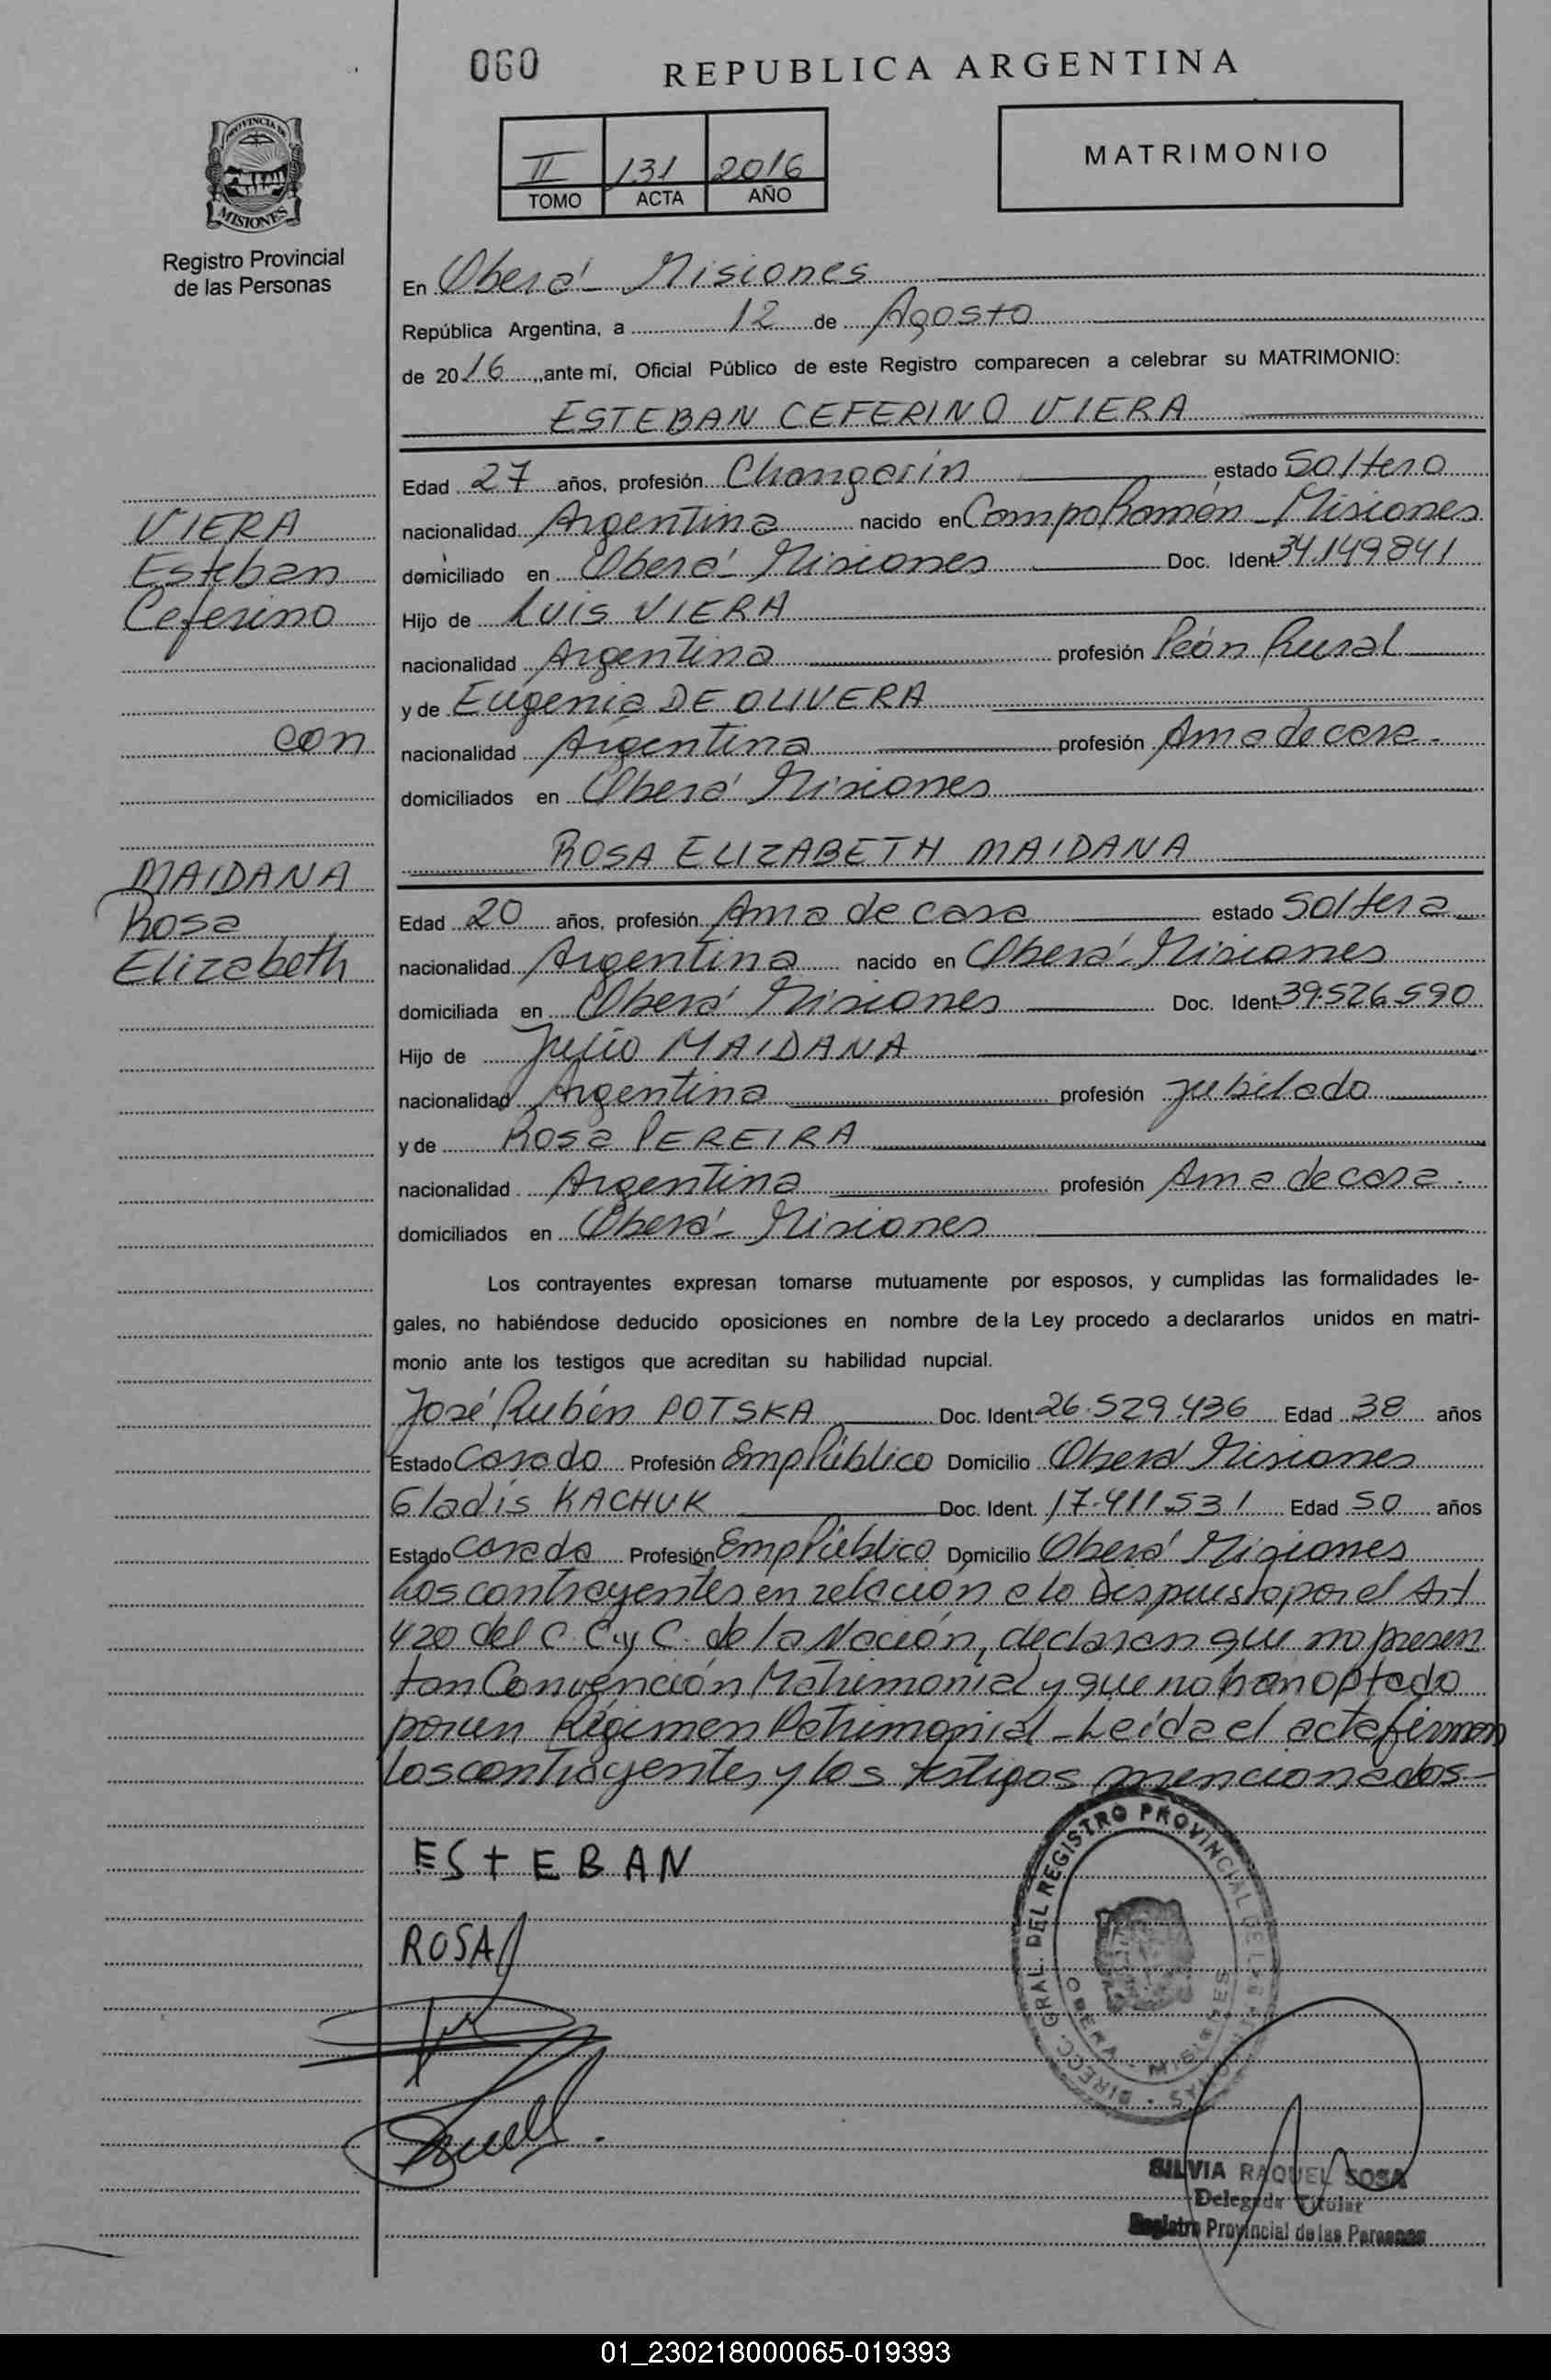 060
REPUBLICA ARGENTINA
PROVINCIA DE
MISIONES
Registro Provincial
de las Personas
II 131 2016
TOMO ACTA AÑO
MATRIMONIO
En Oberá - Misiones
República Argentina, a 12 de Agosto
de 2016, ante mí, Oficial Público de este Registro comparecen a celebrar su MATRIMONIO:
ESTEBAN CEFERINO VIERA
Edad 27 años, profesión Changarín estado Soltero
VIERA
nacionalidad Argentina nacido en Campo Ramón - Misiones
Esteban
domiciliado en Oberá - Misiones Doc. Ident 34.149.841
Ceferino
Hijo de Luis VIERA
nacionalidad Argentina profesión Peón Rural
y de Eugenia DE OLIVERA
con
nacionalidad Argentina profesión Ama de casa.
domiciliados en Oberá Misiones
ROSA ELIZABETH MAIDANA
MAIDANA
Rosa
Elizabeth
Edad 20 años, profesión Ama de casa estado Soltera
nacionalidad Argentina nacido en Oberá - Misiones
domiciliada en Oberá Misiones Doc. Ident 39.526.590
Hijo de Julio MAIDANA
nacionalidad Argentina profesión jubilado
y de Rosa PEREIRA
nacionalidad Argentina profesión Ama de casa.
domiciliados en Oberá - Misiones
Los contrayentes expresan tomarse mutuamente por esposos, y cumplidas las formalidades le-
gales, no habiéndose deducido oposiciones en nombre de la Ley procedo a declararlos unidos en matri-
monio ante los testigos que acreditan su habilidad nupcial.
José Rubén POTSKA Doc. Ident. 26.529.436 Edad 38 años
Estado Casado Profesión Emp Público Domicilio Oberá Misiones
Gladis KACHUK Doc. Ident. 17.411.531 Edad 50 años
Estado Casada Profesión Emp Público Domicilio Oberá Misiones
Los contrayentes en relación a lo Dispuesto por el Art
420 del C. C. y C. de la Nación, declaran que no presen
tan Convención Matrimonial y que no han optado
por un Régimen Patrimonial - Leída el acta firman
los contrayentes y los testigos mencionados -
ESTEBAN
ROSA
DIRECC. GRAL. DEL REGISTRO PROVINCIAL DE LAS PERSONAS
OBERA - MISIONES
SILVIA RAQUEL SOSA
Delegada Titular
Registro Provincial de las Personas
01_230218000065-019393